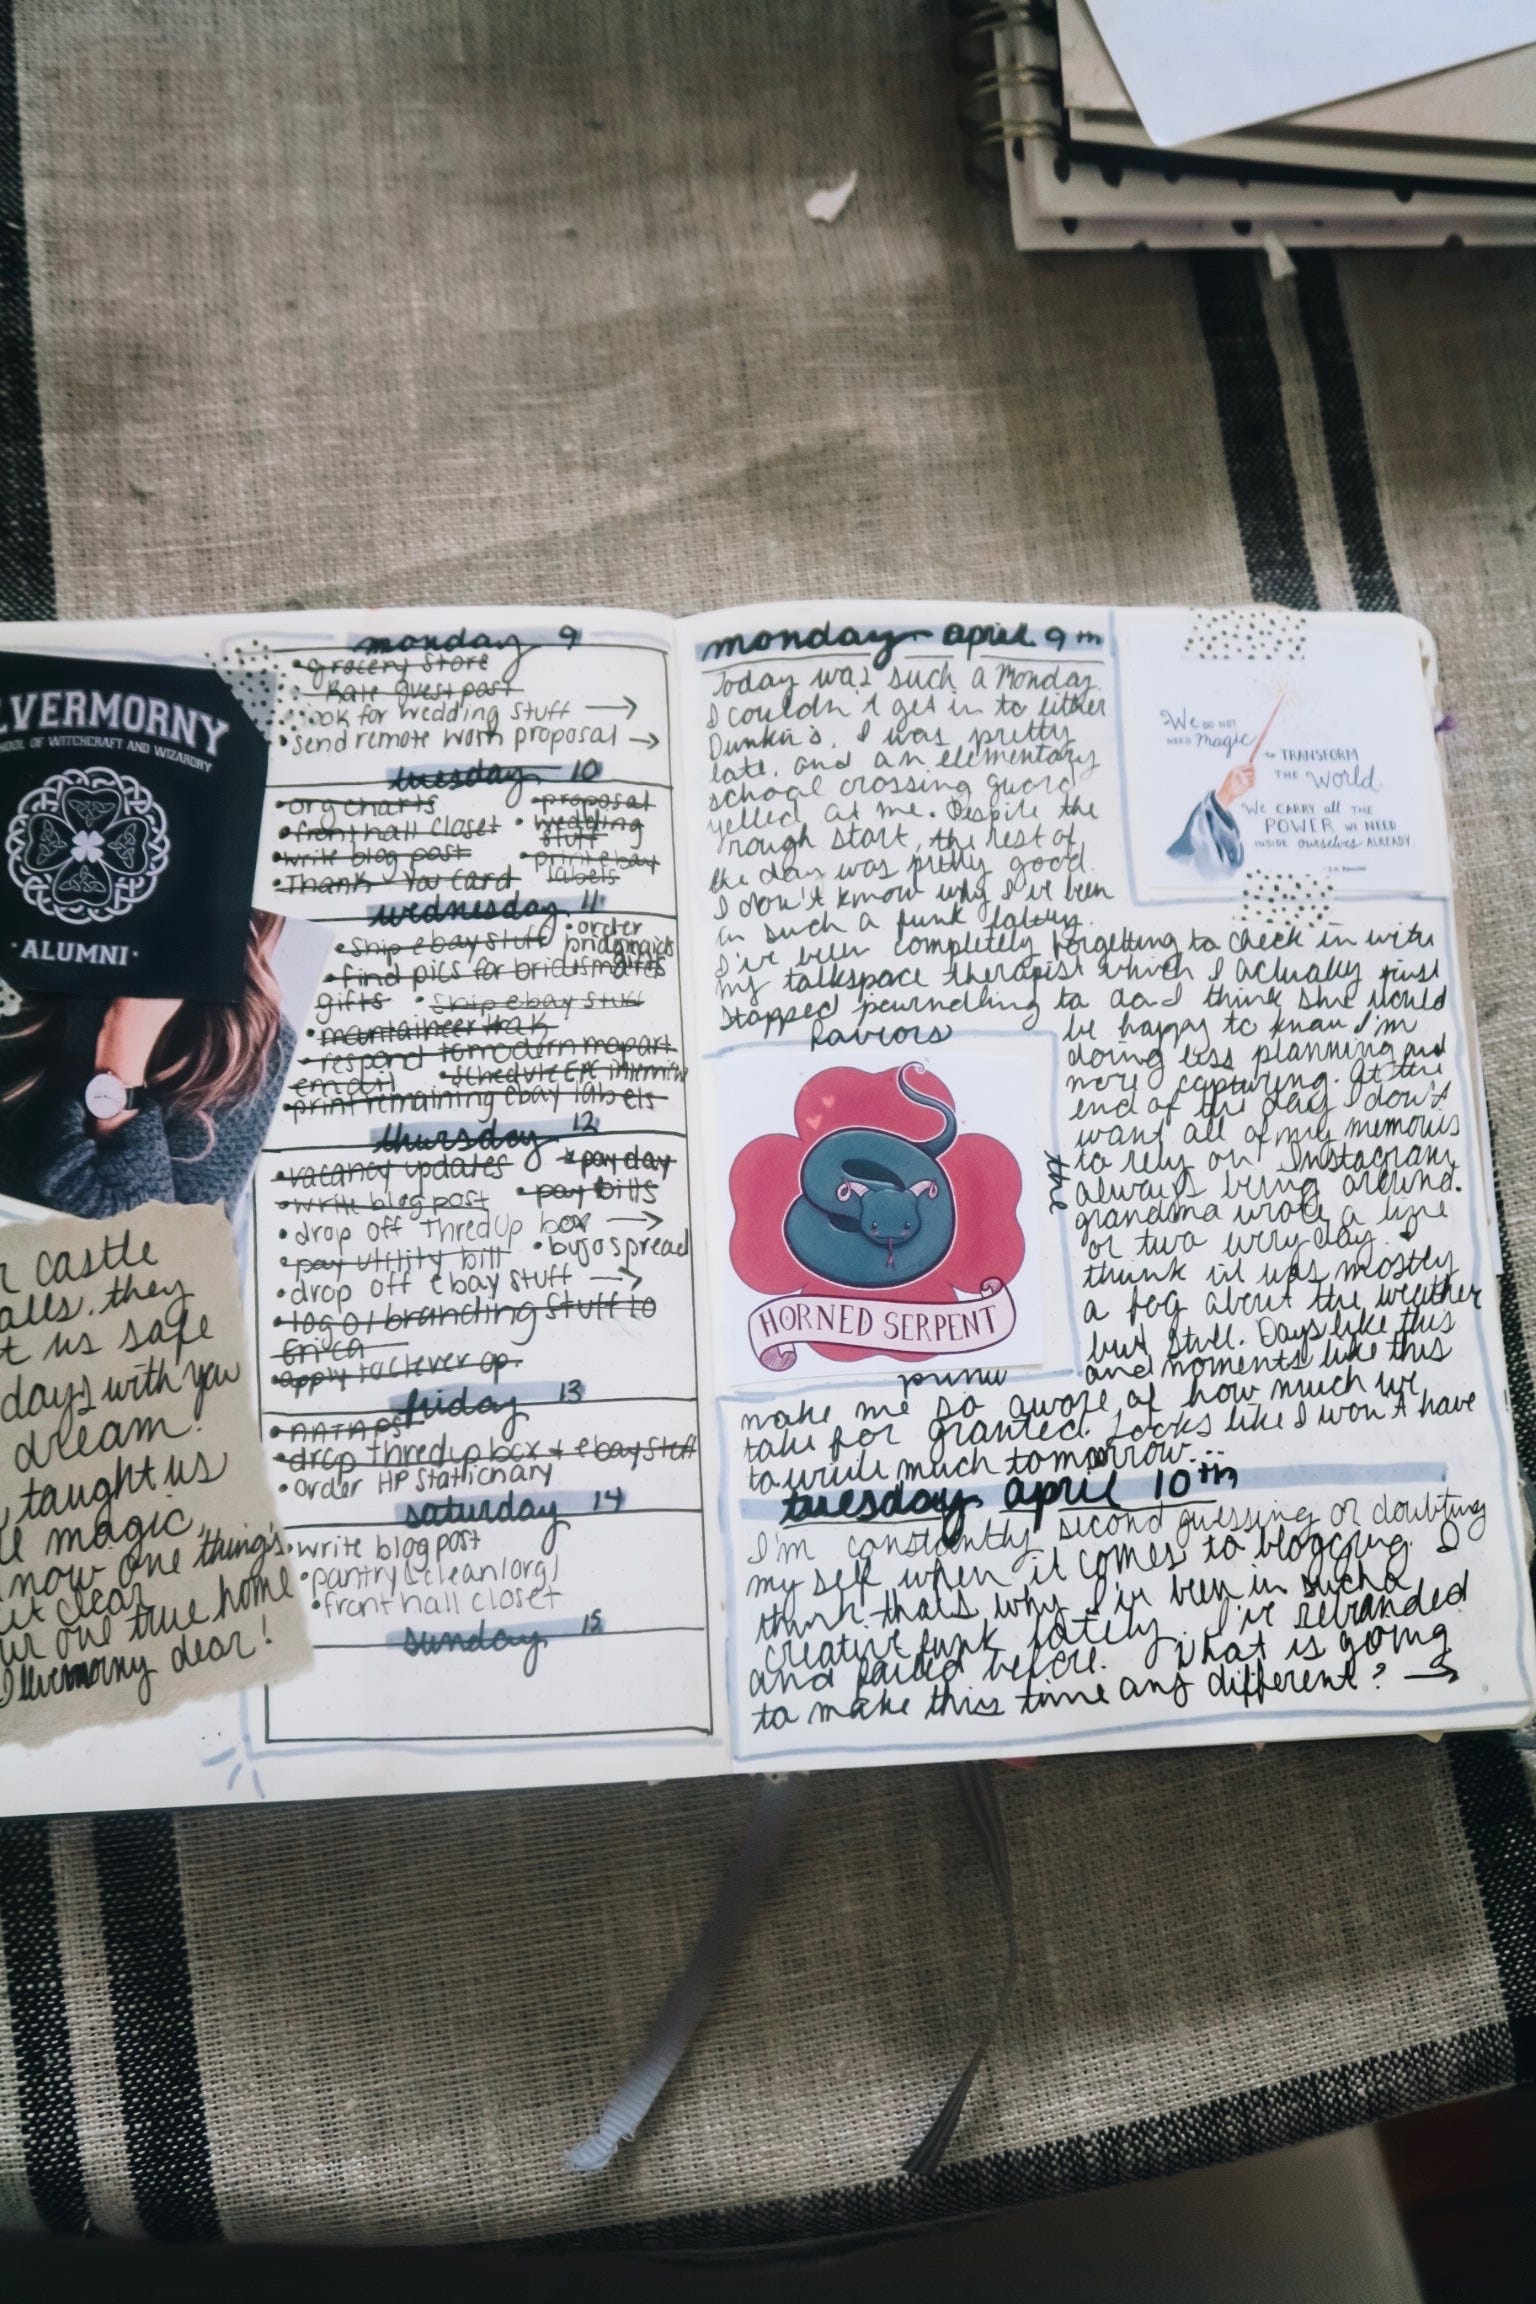 LVERMORNY
OOL OF WITCHCRAFT AND WIZARDRY
·ALUMNI·
r castle
alls. they
t us safe
days with you
dream.
taught us
e magic
now one thing's
it clear
ur one true home
Illvermorny dear!
monday 9
•grocery store
Kate guest post
ook for wedding stuff →
•send remote worth proposal →
tuesday 10
•org charts
•front hall closet
•write blog post
•Thank You Card
•proposal
•wedding
stuff
•print ebay
labels
wednesday 11
•ship ebay stuff
•order
bridesmaids
•find pics for bridesmaids
gifts •ship ebay stuff
•mountaineer
•respond to modern mopart
email •schedule interview
•print remaining ebay labels
thursday 12
•vacancy updates
•write blog post
•drop off thredup box →
•pay utility bill
•drop off ebay stuff →
•logo/branding stuff to
Erica
•apply to clever op.
•pay day
•pay bills
•bujo spread
friday 13
•drop thredup box + ebay stuff
•order HP stationary
saturday 14
•write blog post
•pantry (clean/org)
•front hall closet
sunday 15
monday april 9th
Today was such a Monday.
I couldn't get in to either
Dunkin's, I was pretty
late, and an elementary
school crossing guard
yelled at me. Despite the
rough start, the rest of
the day was pretty good.
I don't know why I've been
in such a funk lately.
I've been completely forgetting to check in with
my talkspace therapist which I actually just
stopped journaling to do. I think she would
be happy to know I'm
doing less planning and
more capturing. At the
end of the day I don't
want all of my memories
to rely on Instagram
always being around.
grandma wrote a line
or two every day. I
think it was mostly
a log about the weather
but still. Days like this
and moments like this
make me so aware of how much we
take for granted. Looks like I won't have
to write much tomorrow...
We DO NOT
NEED magic
to TRANSFORM
THE World.
We CARRY all THE
POWER WE NEED
INSIDE ourselves ALREADY.
HORNED SERPENT
the
tuesday april 10th
I'm constantly second guessing or doubting
myself when it comes to blogging. I
think that's why I've been in such a
creative funk lately. I've rebranded
and failed before. What is going
to make this time any different? →